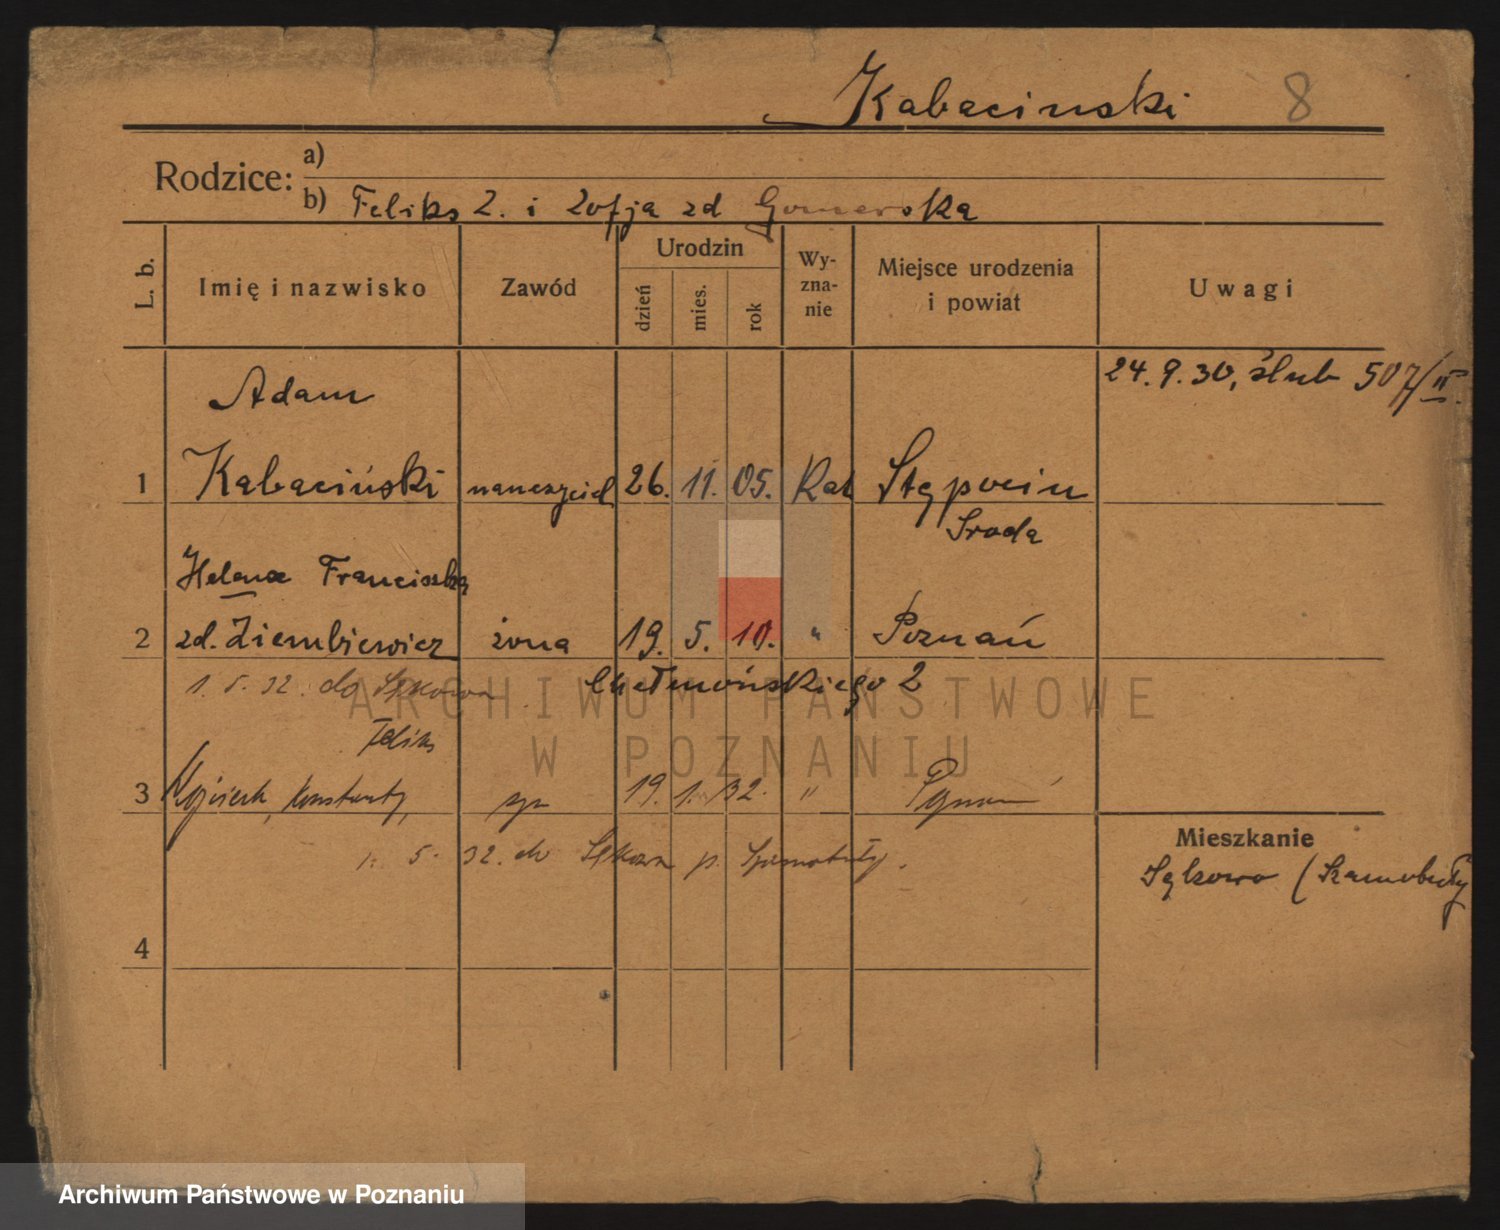 Kabacinski 8
Rodzice: a)
b) Feliks 2. i Zofja zd
L. b. Imię i nazwisko Zawód Urodzin dzień mies. rok Wy-zna-nie Miejsce urodzenia i powiat Uwagi
24. 9. 30, ślub 507/II.
Adam
1 Kabaciński nauczyciel 26. 11. 05. Kat Stępocin
Sroda
Helena Franciszka
2 zd. Ziembiewicz żona 19. 5. 10. " Poznań
1. 5. 32. do Sękowa Chełmońskiego 2
Feliks
3 Wojciech, Konstanty, syn 19. 1. 32. " Poznań
1. 5. 32. do Sękowa p. Szamotuły.
Mieszkanie
Sękowo (Szamotuły
4
ARCHIWUM PAŃSTWOWE
W POZNANIU
Archiwum Państwowe w Poznaniu